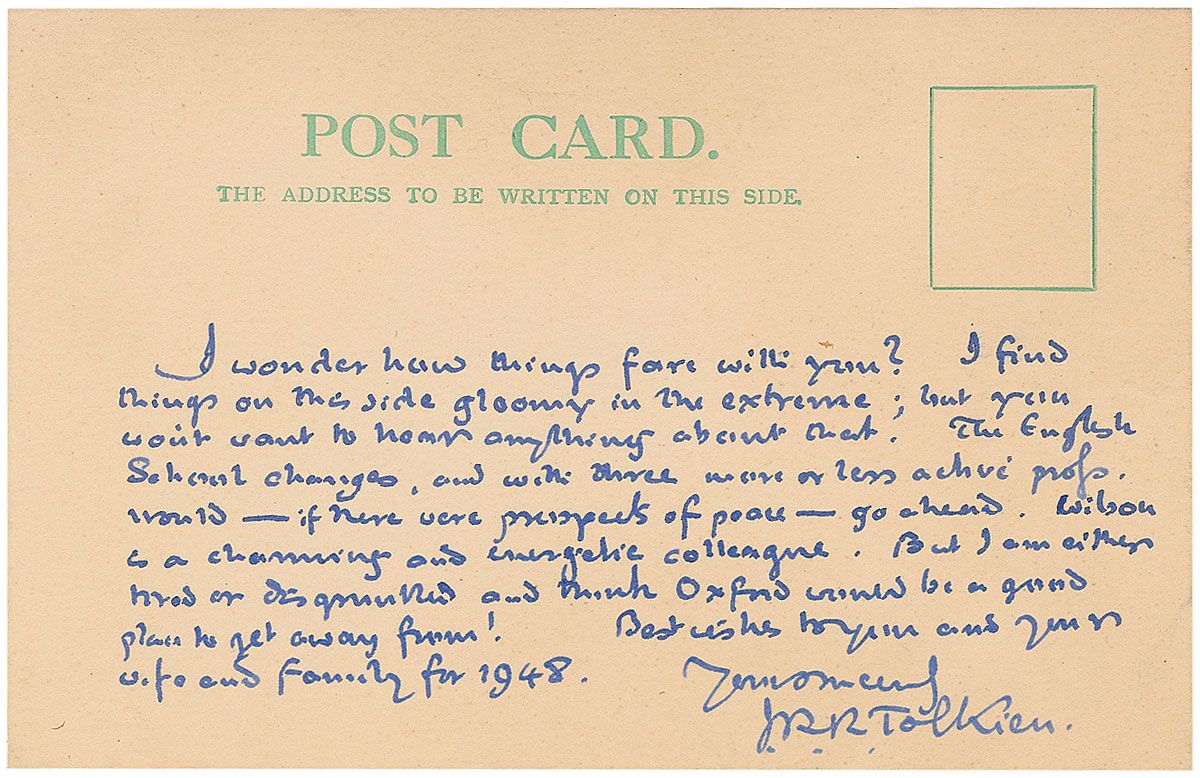 POST CARD.
THE ADDRESS TO BE WRITTEN ON THIS SIDE.
I wonder how things fare with you? I find
things on this side gloomy in the extreme; but you
won't want to hear anything about that. The English
School changes, and with three more or less active profs.
would — if there were prospects of peace — go ahead. Wilson
is a charming and energetic colleague. But I am either
tired or disgruntled and think Oxford would be a good
place to get away from! Best wishes to you and your
wife and family for 1948.
Yours sincerely
J.R.R. Tolkien.